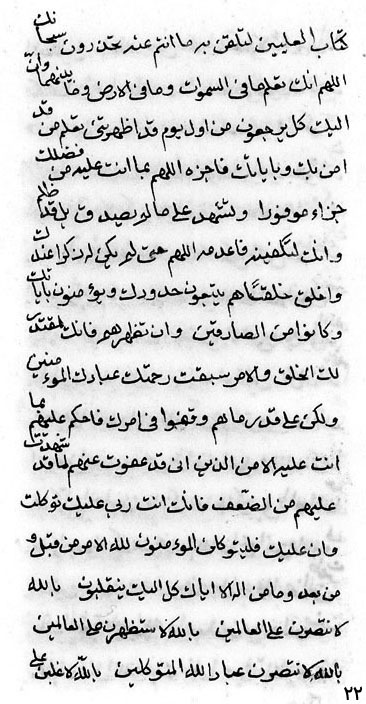 كتاب العليين لتلقن به ما انتم عنه تحذرون سبحانك
اللهم انك تعلم ما فى السموات وما فى الارض وما بينهما وان
اليك كل يرجعون من اول يوم قد اظهرتنى تعلم من قد
امن بك وباياتك فاجزه اللهم بما انت عليه من فضلك
جزاء موفورا ولتشهد على ما لم يصيد وبل قد ظلم
وانك لتكفينه فاعدمه اللهم حتى لم يكن له ذكرا عندك
واخلق خلقا هم يتبعون حدودك ويوءمنون باياتك
وكانوا من الصادقين وان تظهرهم فانك لمقتدر
لك الخلق والامر سبقت رحمتك عبادك الموءمنين
ولكن على قدر ما هم وقفوا فى امرك فاحكم عليهم بما
انت عليه الا من الذين انى قد عفوت عنهم لما قد شهدت
عليهم من الضعف فانك انت ربى عليك توكلت
وان عليك فليتوكلن الموءمنون لله الامر من قبل و
من بعد وما من اله الا اياك كل اليك ينقلبون بالله
لاتنصرون على العالمين بالله لاستظهرن على العالمين
بالله لاتنصرون عباد الله المتوكلين بالله لاغلبن على
٢٢